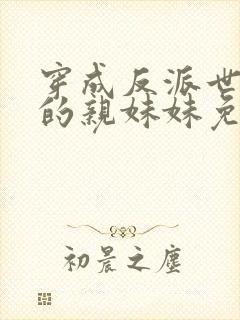 穿成反派世
的亲妹妹免
初晨之尘